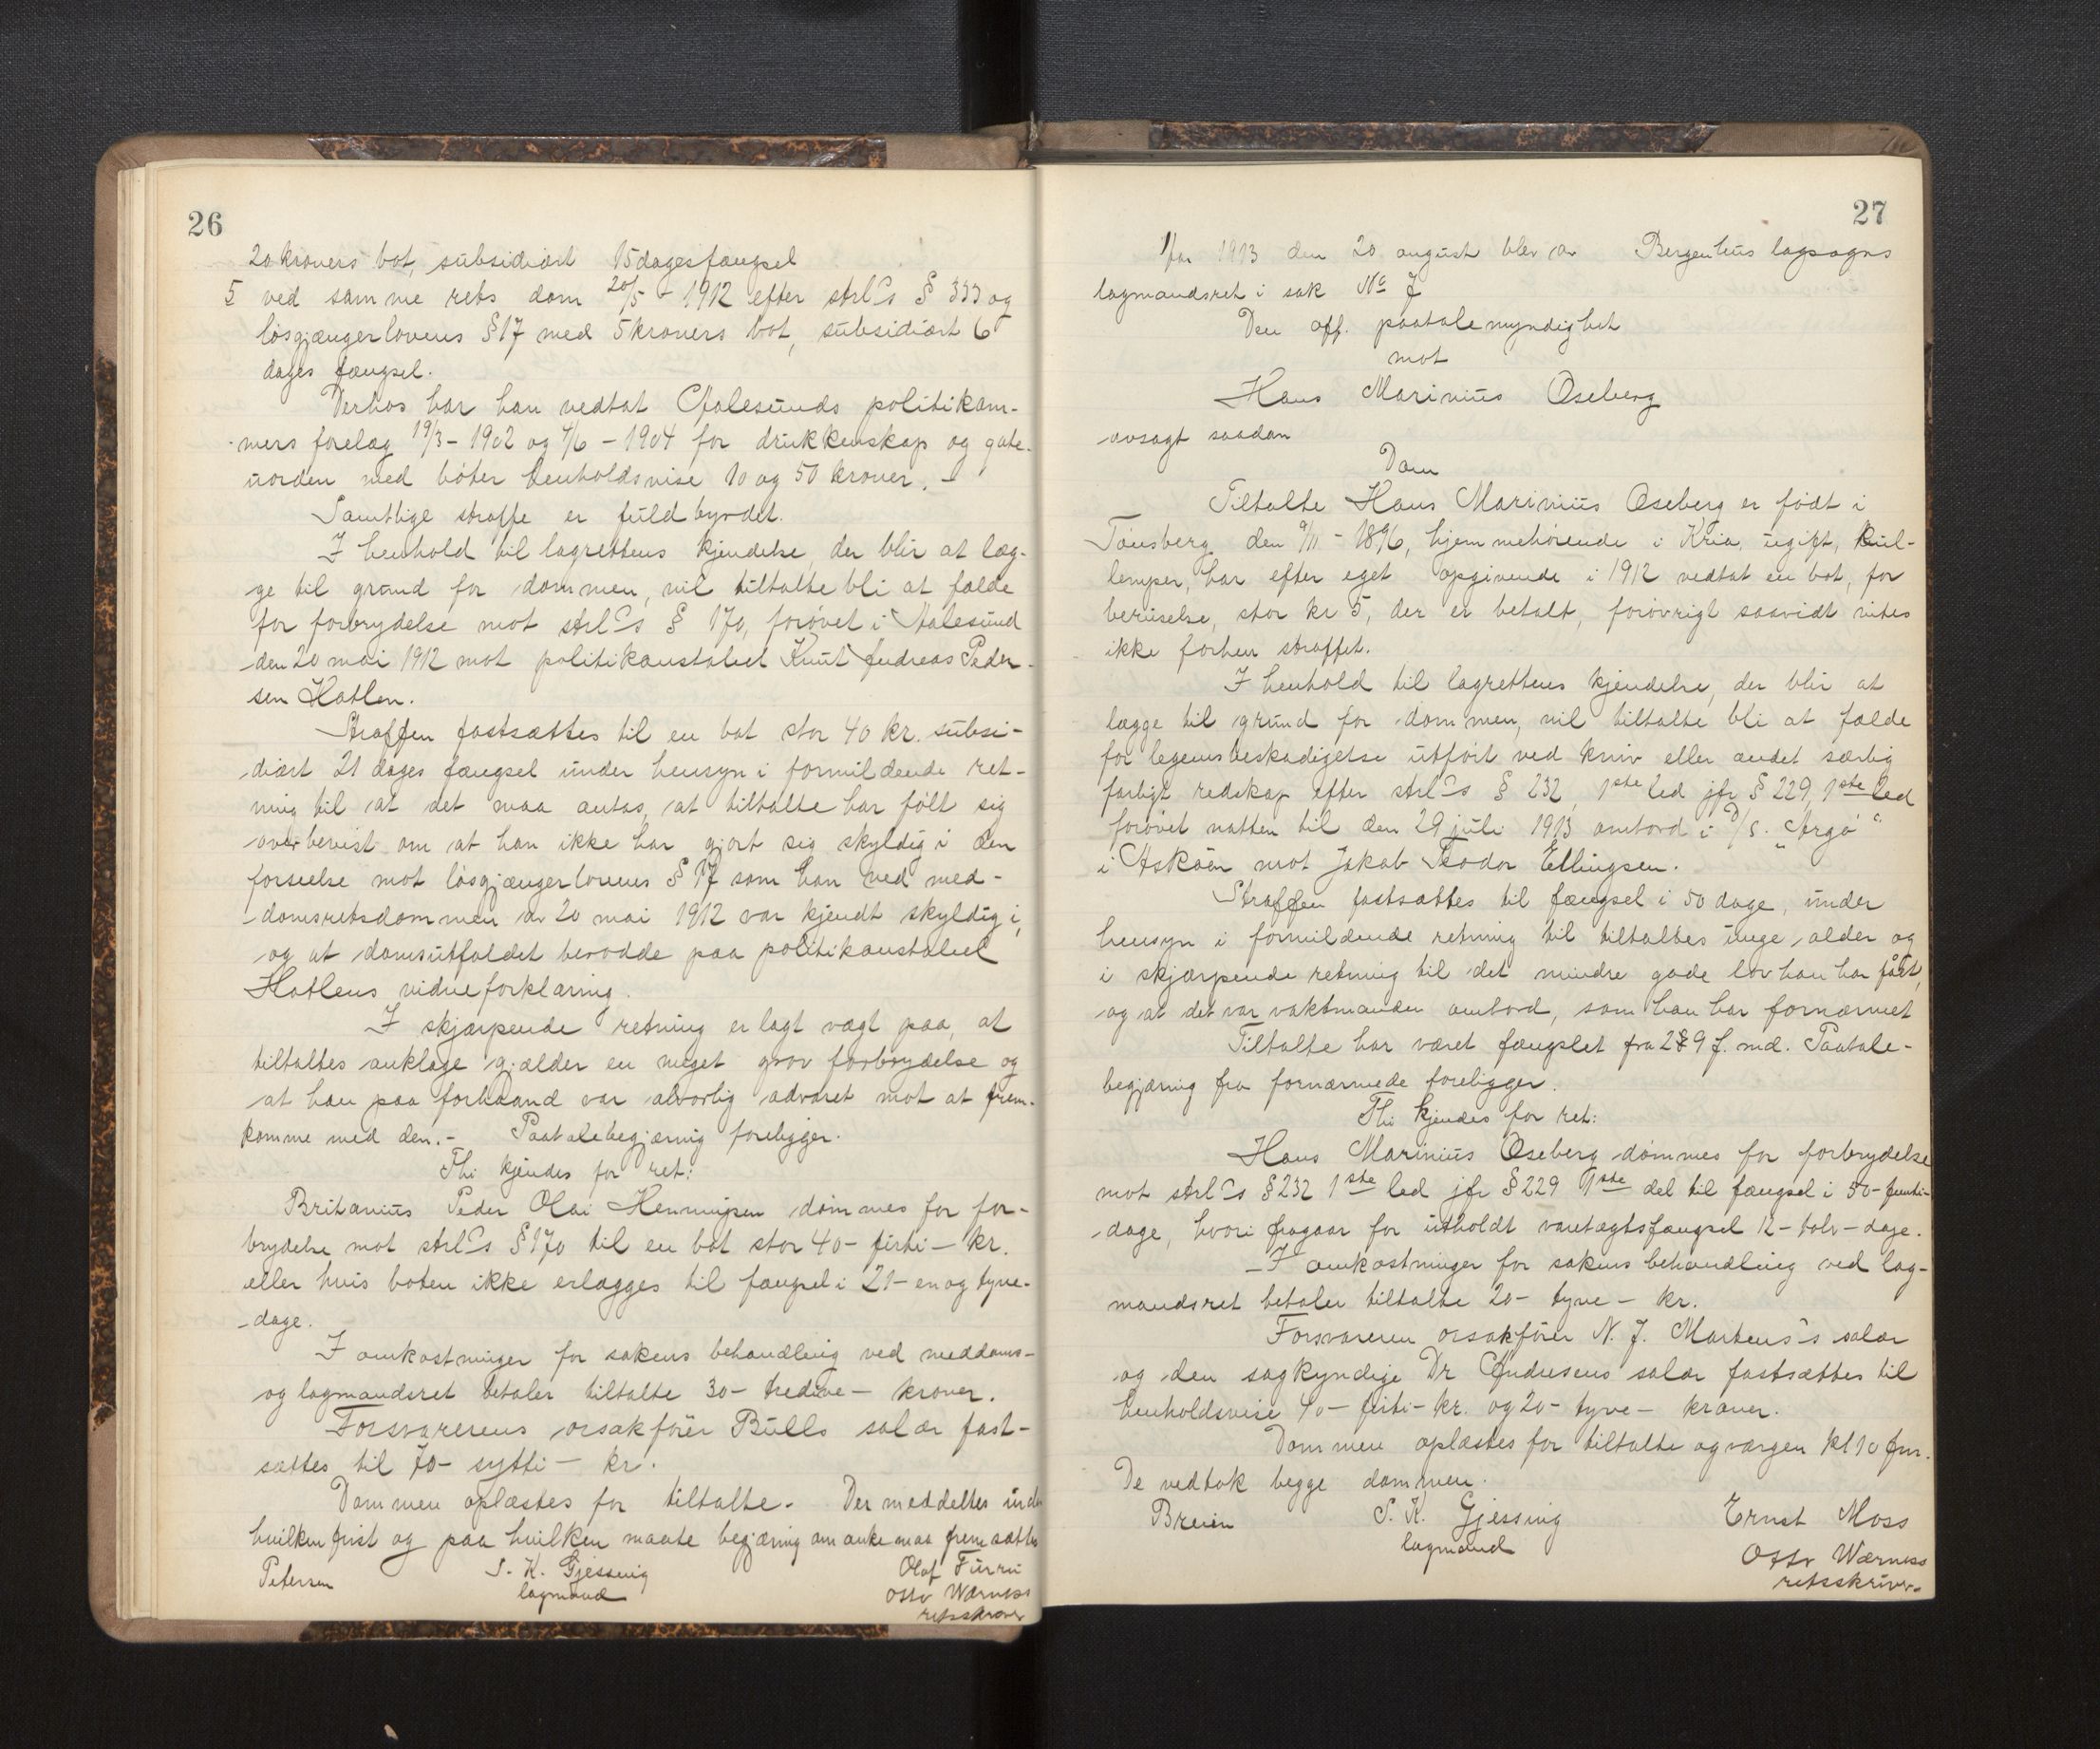 26
20 kroners bot, subsidiært 15 dages fængsel
5 ved samme rets dom 20/5 - 1912 efter strl's § 333 og
løsgjængerlovens § 17 med 5 kroners bot, subsidiært 6
dages fængsel.
Derhos har han vedtat Aalesunds politikam-
mers forelæg 19/3 - 1902 og 4/6 - 1904 for drukkenskap og gate-
uorden med bøter henholdsvise 10 og 50 kroner. -
Samtlige straffe er fuldbyrdet.
I henhold til lagrettens kjendelse, der blir at læg-
ge til grund for dommen, vil tiltalte bli at fælde
for forbrydelse mot strl's § 170, forøvet i Aalesund
den 20 mai 1912 mot politikonstabel Knut Andreas Peder-
sen Hatlen.
Straffen fastsættes til en bot stor 40 kr. subsi-
diært 21 dages fængsel under hensyn i formildende ret-
ning til at det maa antas, at tiltalte har følt sig
overbevist om at han ikke har gjort sig skyldig i den
forseelse mot løsgjængerlovens § 17 som han ved med-
domsretsdommen av 20 mai 1912 var kjendt skyldig i,
og at domsutfaldet berodde paa politikonstabel
Hatlens vidneforklaring.
I skjærpende retning er lagt vægt paa, at
tiltaltes anklage gjælder en meget grov forbrydelse og
at han paa forhaand var alvorlig advaret mot at frem-
komme med den. - Paatalebegjæring foreligger.
Thi kjendes for ret:
Britanius Peder Olai Henningsen dømmes for for-
brydelse mot strl's § 170 til en bot stor 40 - firti - kr.
eller hvis boten ikke erlægges til fængsel i 21 - en og tyve -
dage.
I omkostninger for sakens behandling ved meddoms-
og lagmandsret betaler tiltalte 30 - tredive - kroner.
Forsvarerens orsakfører Bulls salær fast-
sættes til 70 - sytti - kr.
Dommen oplæstes for tiltalte. Der meddeltes inden
hvilken frist og paa hvilken maate begjæring om anke maa fremsættes
Petersen S. K. Gjessing Olaf Furru
lagmand Otto Wærness
retsskriver
27
Aar 1913 den 20 august blev av Bergenhus lagsogns
lagmandsret i sak No 7
Den off. paatalemyndighet
mot
Hans Marinius Oseberg
avsagt saadan
Dom
Tiltalte Hans Marinius Oseberg er født i
Tønsberg den 9/11 - 1896, hjemmehørende i Kria, ugift, kul-
lemper, har efter eget opgivende i 1912 vedtat en bot, for
beruselse, stor kr 5, der er betalt, forøvrigt saavidt vites
ikke forhen straffet.
I henhold til lagrettens kjendelse, der blir at
lægge til grund for dommen, vil tiltalte bli at fælde
for legemsbeskadigelse utført ved kniv eller andet særlig
farligt redskap efter strl's § 232, 1ste led jfr § 229, 1ste led
forøvet natten til den 29 juli 1913 ombord i D/S. "Argo"
i Askøen mot Jakob Teodor Ellingsen.
Straffen fastsættes til fængsel i 50 dage, under
hensyn i formildende retning til tiltaltes unge alder og
i skjærpende retning til det mindre gode lov han har faat,
og at det var vaktmanden ombord, som han har fornærmet
Tiltalte har været fængslet fra 29 f. md. Paatale-
begjæring fra fornærmede foreligger.
Thi kjendes for ret:
Hans Marinius Oseberg dømmes for forbrydelse
mot strl's § 232 1ste led jfr § 229 1ste del til fængsel i 50 - femti -
dage, hvori fragaar for utholdt varetægtsfængsel 12 - tolv - dage.
I omkostninger for sakens behandling ved lag-
mandsret betaler tiltalte 20 - tyve - kr.
Forsvareren orsakfører N. J. Martens's salær
og den sagkyndige Dr Andresens salær fastsættes til
henholdsvise 40 - firti - kr. og 20 - tyve - kroner.
Dommen oplæstes for tiltalte og vergen kl 10 fm.
De vedtok begge dommen.
Breien S. K. Gjessing Ernst Moss
lagmand Otto Wærness
retsskriver